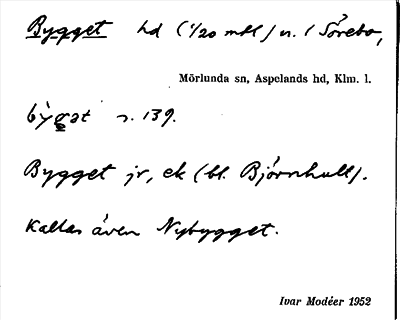 Bygget hd (1/20 mtl) n. i Sörebo,
Mörlunda sn, Aspelands hd, Klm. l.
s. 139.
Bygget jr, ek (bl. Björnhull).
Kallas även Nybygget.
Ivar Modéer 1952